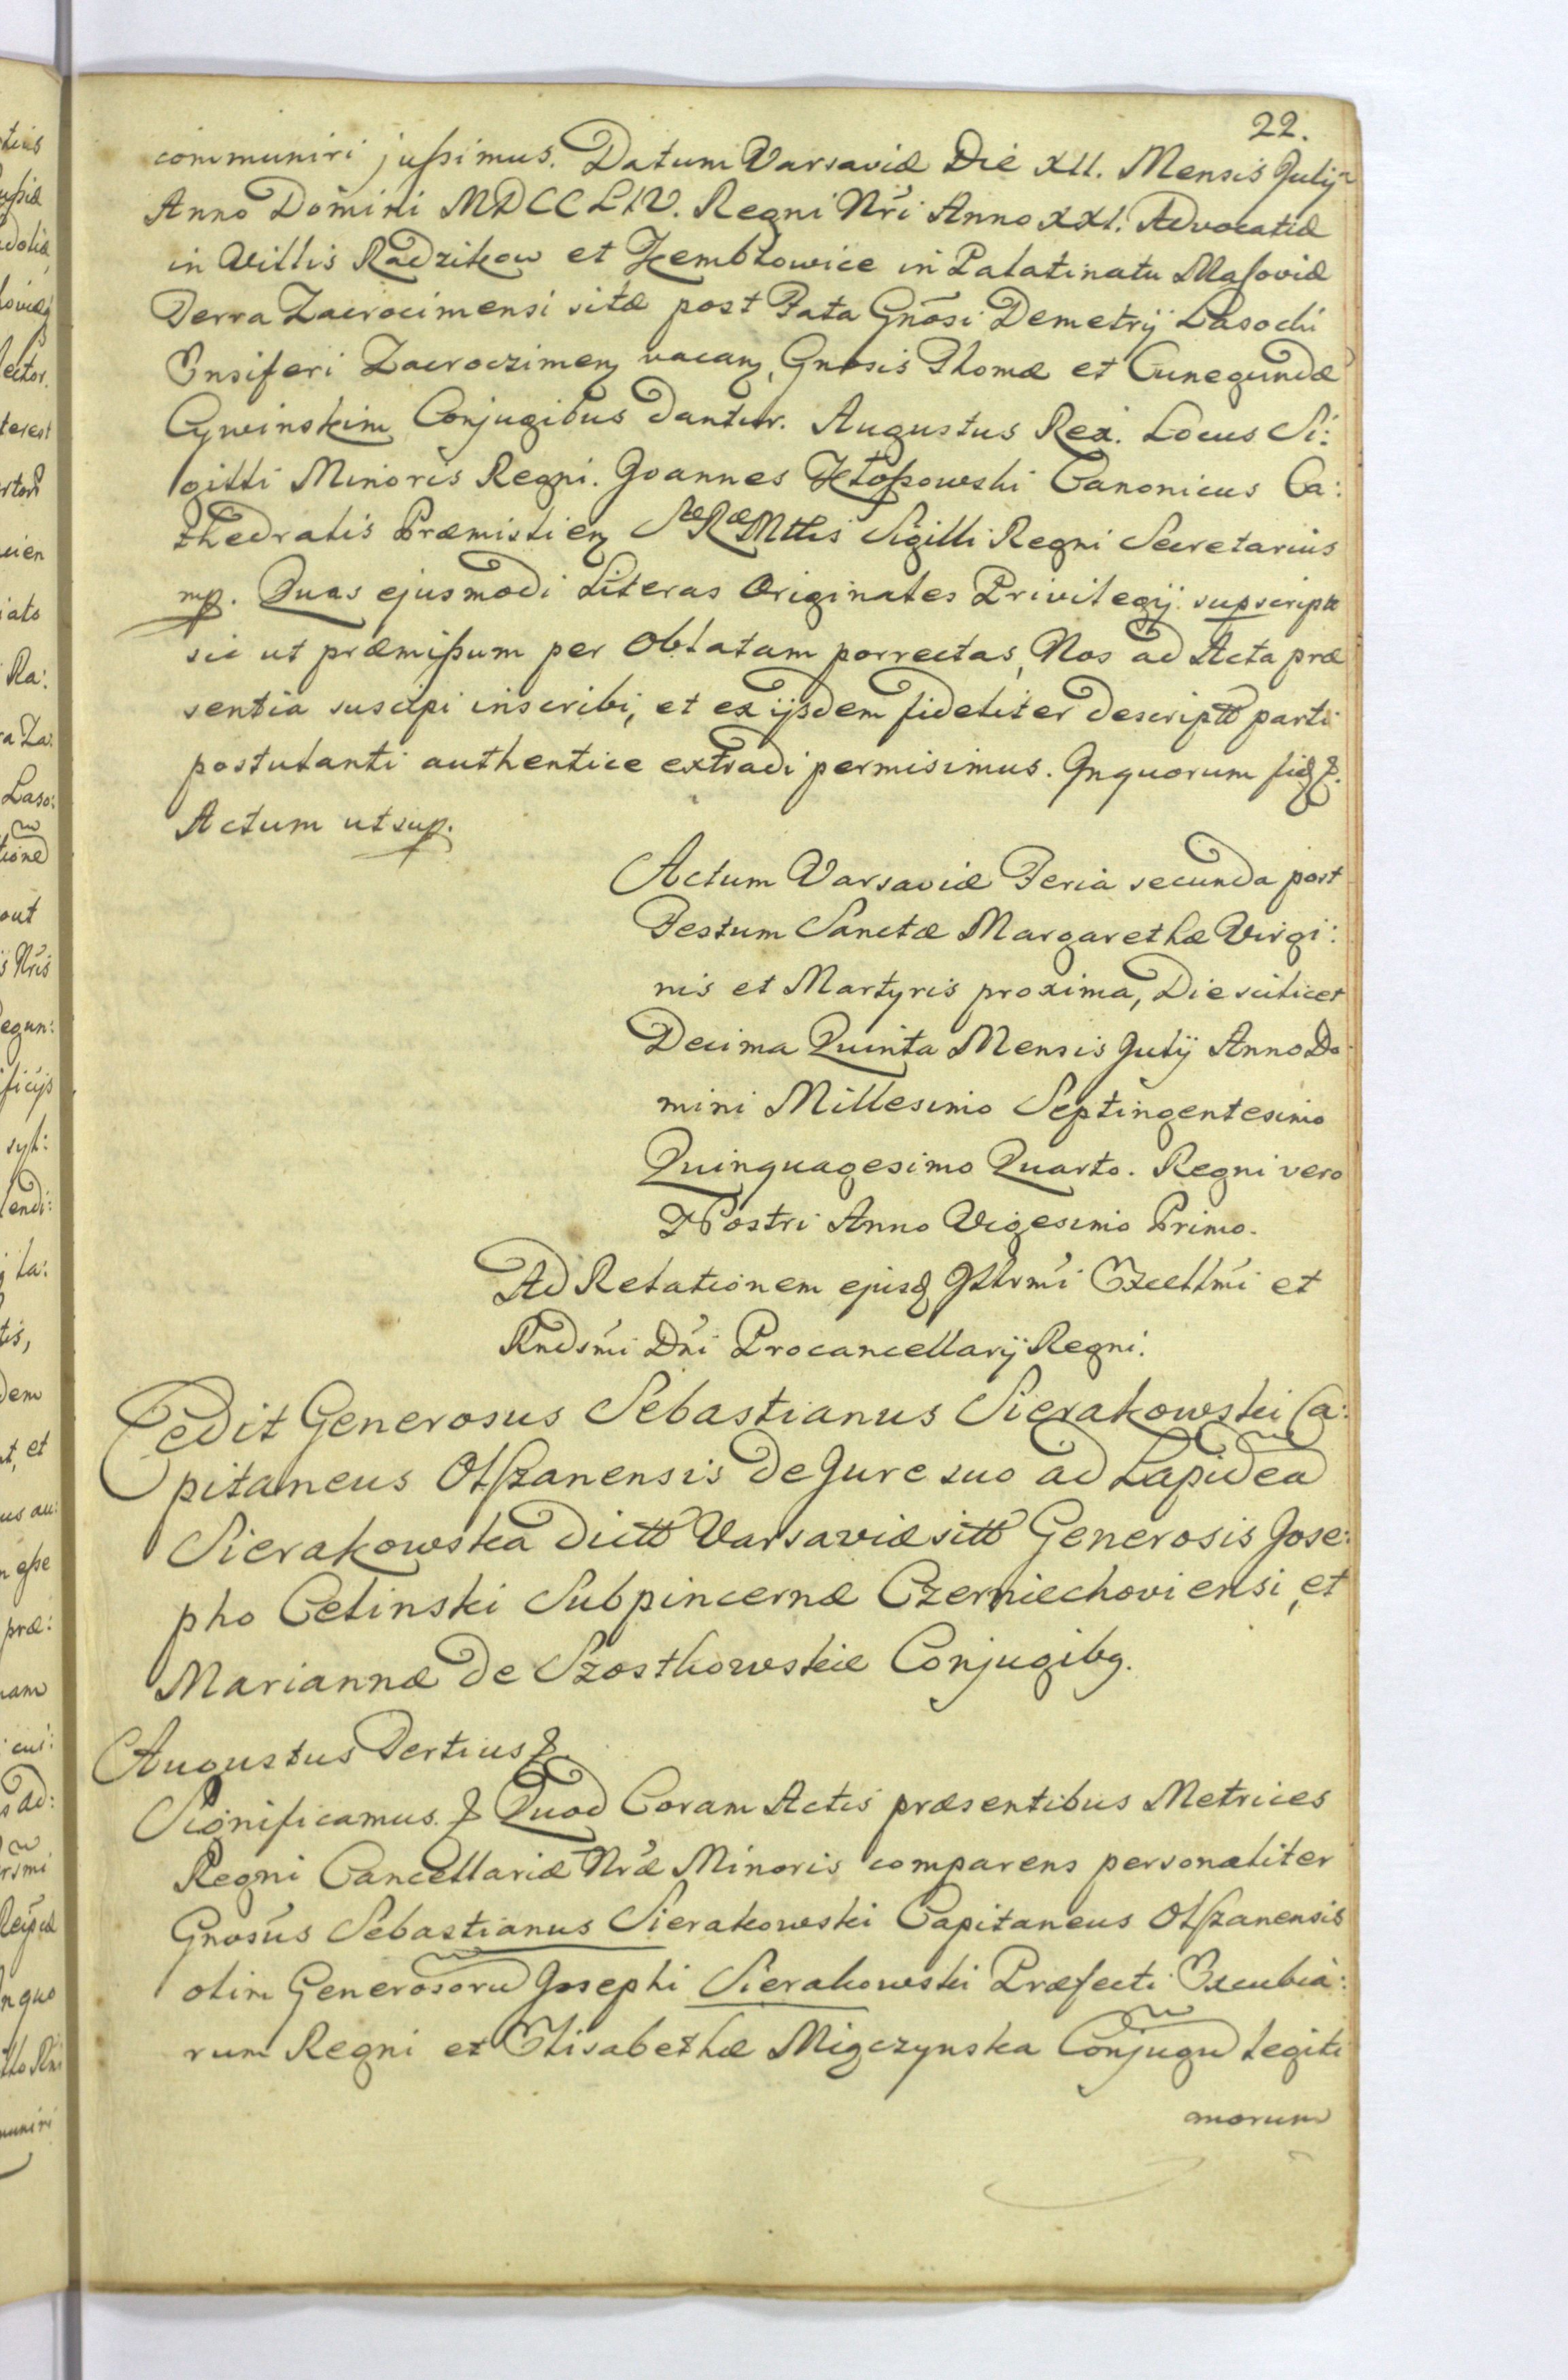 22.
communiri jussimus. Datum Varsaviæ Die XII. Mensis Julij
Anno Domini MDCCLIV. Regni Nri Anno XXI. Advocatia
in Villis Radzikow et Zembtowice in Palatinatu Masoviæ
Terra Zacrocimensi sitæ post Fata Gnosi Demetrij Lasocki
Ensiferi Zacroczimen vacan, Gnosis Thomæ et Cunegundæ
Cywinskim Conjugibus Dantur. Augustus Rex. Locus Si:
gilli Minoris Regni. Joannes Kłossowski Canonicus Ca:
thedralis Præmislien SæRæMttis Sigilli Regni Secretarius
mp. Quas ejusmodi Literas Originales Privilegij supscripte
sic ut præmissum per Oblatam porrectas, Nos ad Acta præ
sentia suscipi inscribi, et ex ijsdem fideliter descriptt parti
postulanti authentice extradi permisimus. In quorum fid &.
Actum ut sup.
Actum Varsaviæ Feria secunda post
Festum Sanctæ Margarethæ Virgi:
nis et Martyris proxima, Die scilicet
Decima Quinta Mensis Julij Anno Do
mini Millesimo Septingentesimo
Quinquagesimo Quarto. Regni vero
Nostri Anno Vigesimo Primo.
Ad Relationem ejusd Illrmi Excellmi et
Rndsmi Dni Procancellarij Regni.
Cedit Generosus Sebastianus Sierakowski Ca:
pitaneus Olszanensis de Jure suo ad Lapidea
Sierakowska dictt Varsaviæ sitt Generosis Jose:
pho Celinski Subpincernæ Czerniechoviensi, et
Mariannæ de Szostkowskie Conjugibq.
Augustus Tertius &.
Significamus. & Quod Coram Actis præsentibus Metrices
Regni Cancellariæ Nræ Minoris comparens personaliter
Gnosus Sebastianus Sierakowski Capitaneus Olszanensis
olim Generosoru Josephi Sierakowski Præfecti Excubia:
rum Regni et Elisabethæ Migczynska Conjugu legiti
morum